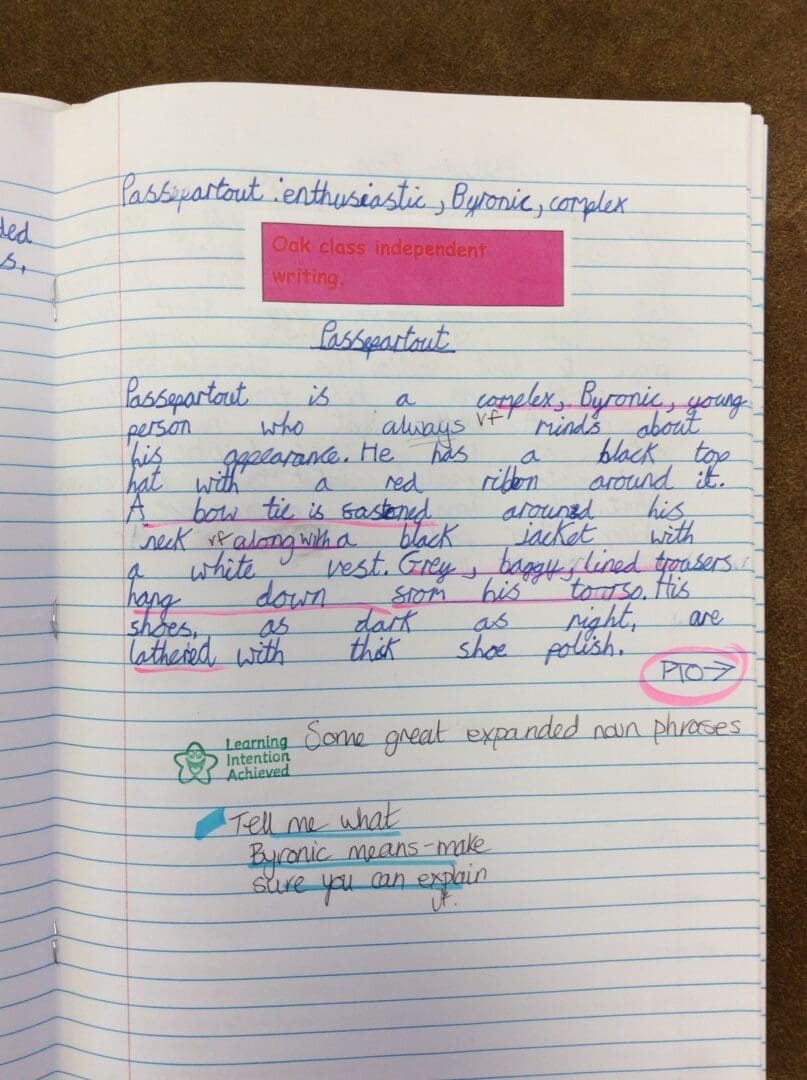 ded
s,
Passepartout : enthusiastic, Byronic, complex
Oak class independent
writing.
Passepartout
Passepartout is a complex, Byronic, young
person who always vf minds about
his appearance. He has a black top
hat with a red ribbon around it.
A bow tie is fastened around his
neck vf along with a black jacket with
a white vest. Grey, baggy, lined trousers
hang down from his torrso. His
shoes, as dark as night, are
lathered with thik shoe polish.
PTO→
Learning
Intention
Achieved
Some great expanded noun phrases
Tell me what
Byronic means-make
sure you can explain
vf.